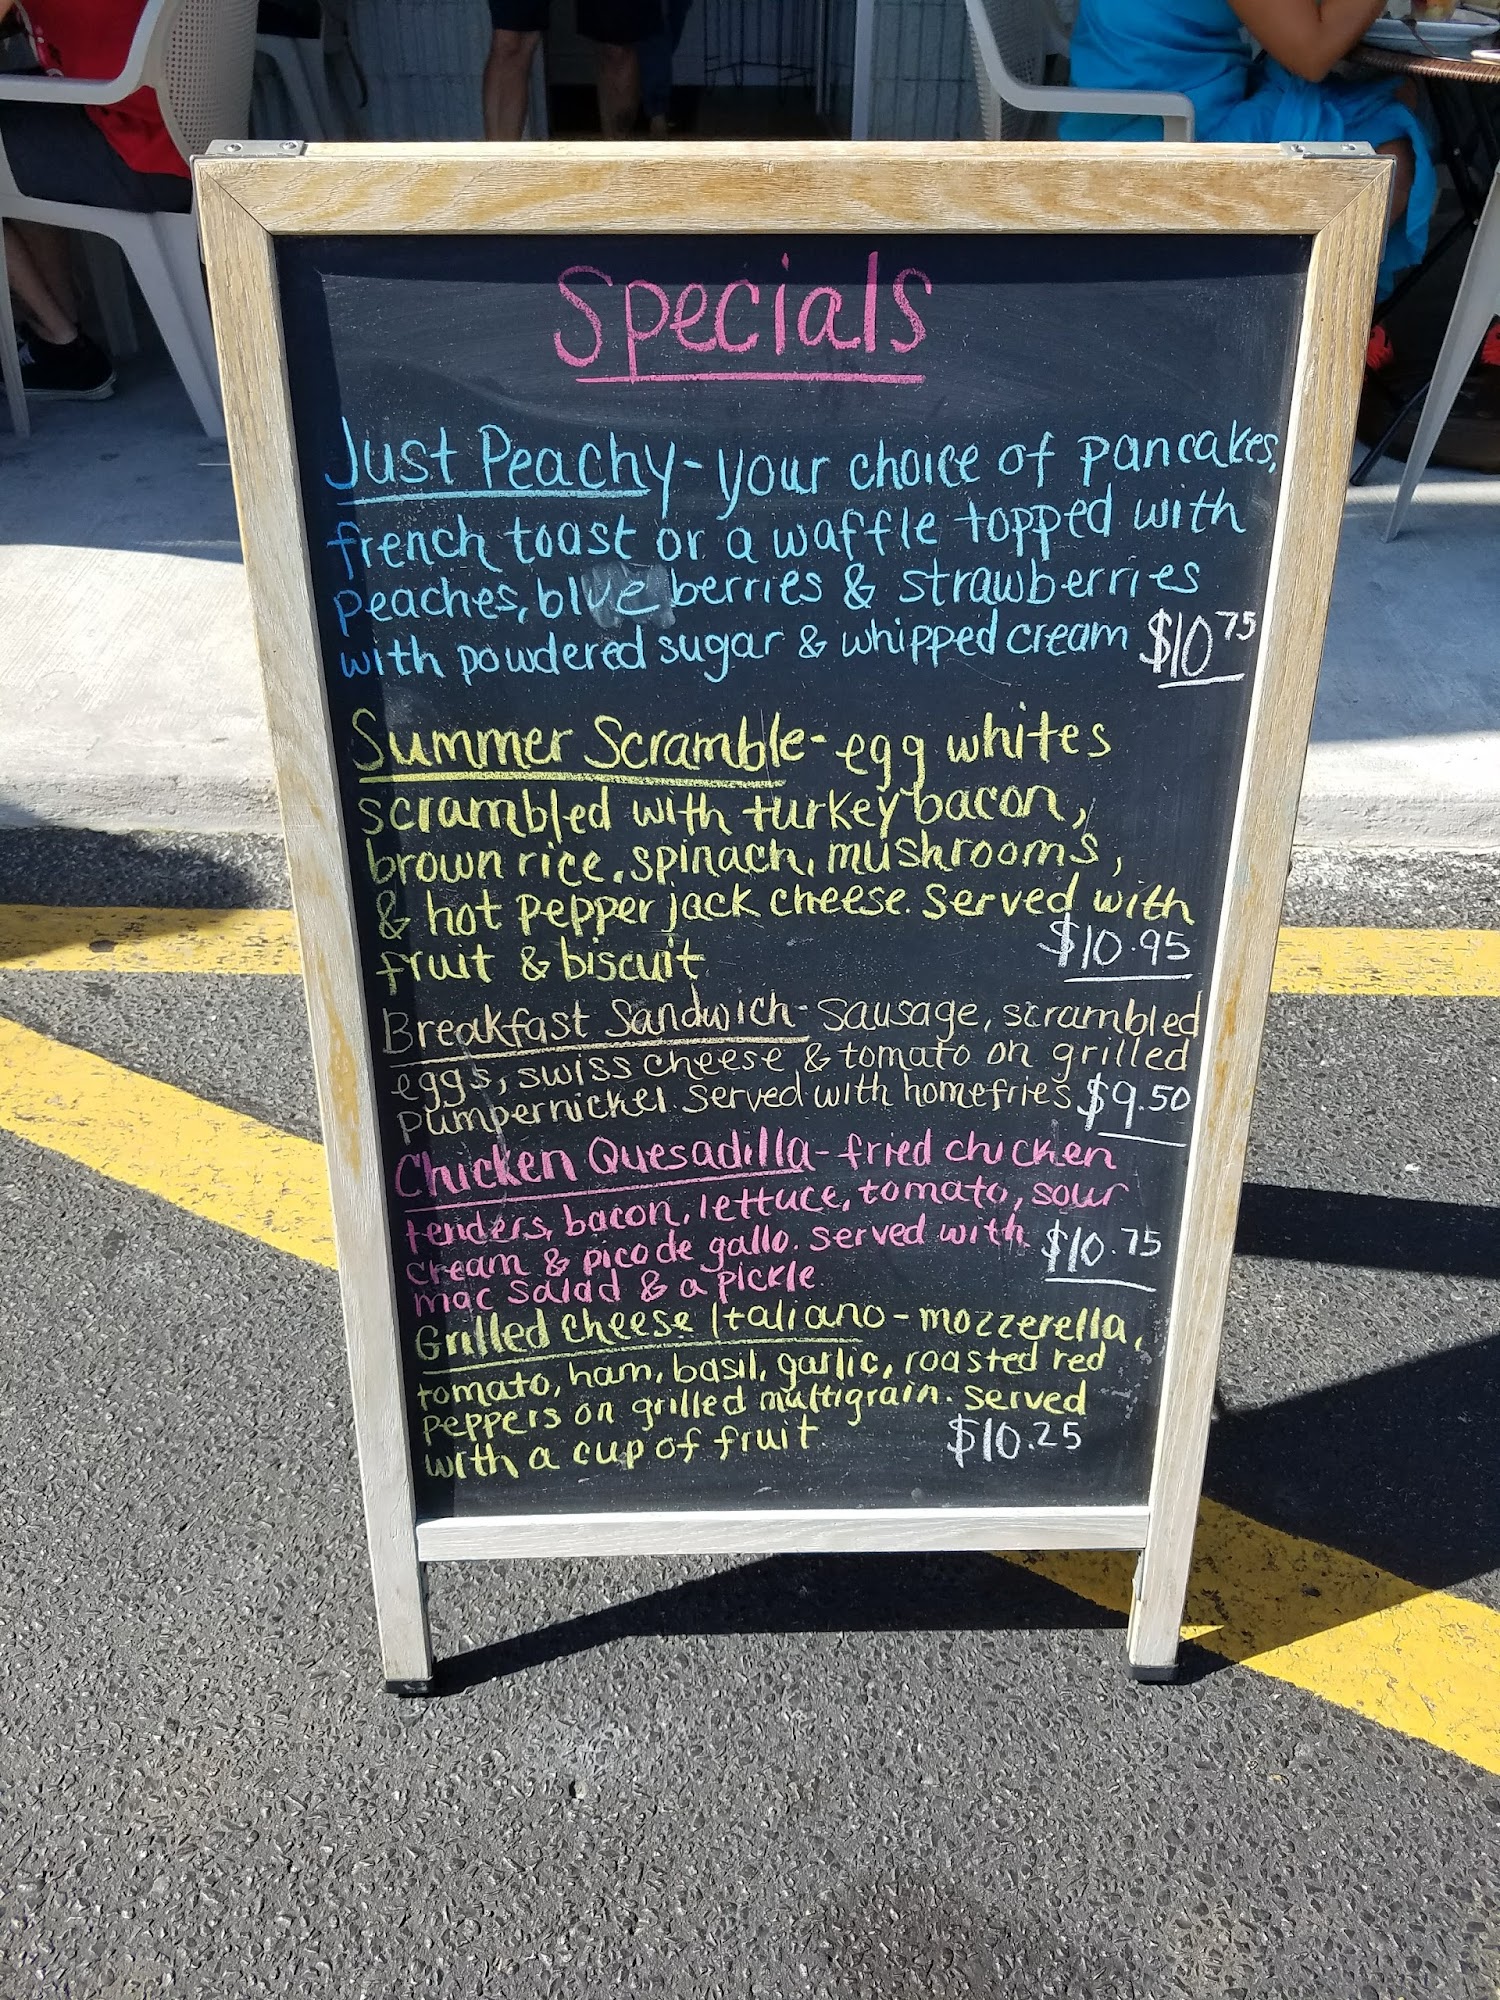 Specials
Just Peachy - your choice of pancakes,
french toast or a waffle topped with
peaches, blueberries & strawberries
with powdered sugar & whipped cream $10 75
Summer Scramble - egg whites
scrambled with turkey bacon,
brown rice, spinach, mushrooms,
& hot pepper jack cheese. Served with
fruit & biscuit $10.95
Breakfast Sandwich - sausage, scrambled
eggs, swiss cheese & tomato on grilled
pumpernickel. Served with homefries $9.50
Chicken Quesadilla - fried chicken
tenders, bacon, lettuce, tomato, sour
cream & pico de gallo. Served with $10.75
mac salad & a pickle
Grilled cheese Italiano - mozzerella,
tomato, ham, basil, garlic, roasted red
peppers on grilled multigrain. Served
with a cup of fruit $10.25